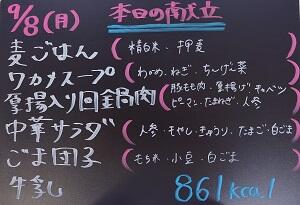 9/8(月) 本日の献立
麦ごはん (精白米・押麦)
ワカメスープ (わかめ・ねぎ・ちんげん菜)
厚揚入り回鍋肉 (豚もも肉・厚揚げ・キャベツ
ピーマン・たまねぎ・人参)
中華サラダ (人参・もやし・きゅうり・たまご・白ごま)
ごま団子 (もち米・小豆・白ごま)
牛乳 861kcal